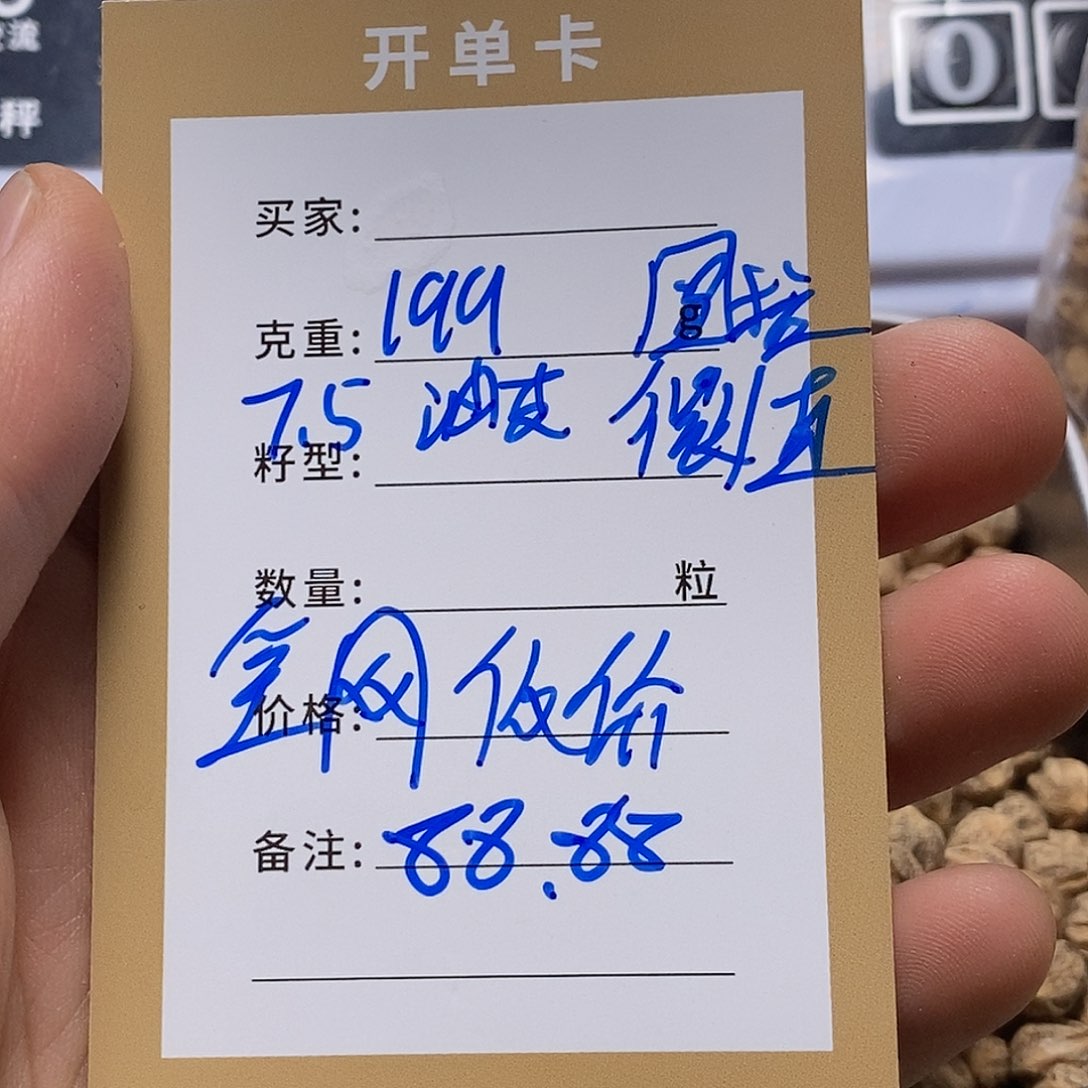 流
秤
0
开单卡
买家:
克重: 199 g 圆粒
7.5 油皮 微直
籽型:
数量: 粒
全网低价
价格:
备注: 88.88